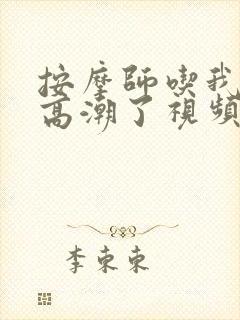 按摩師喫我
高潮了視頻
李東東